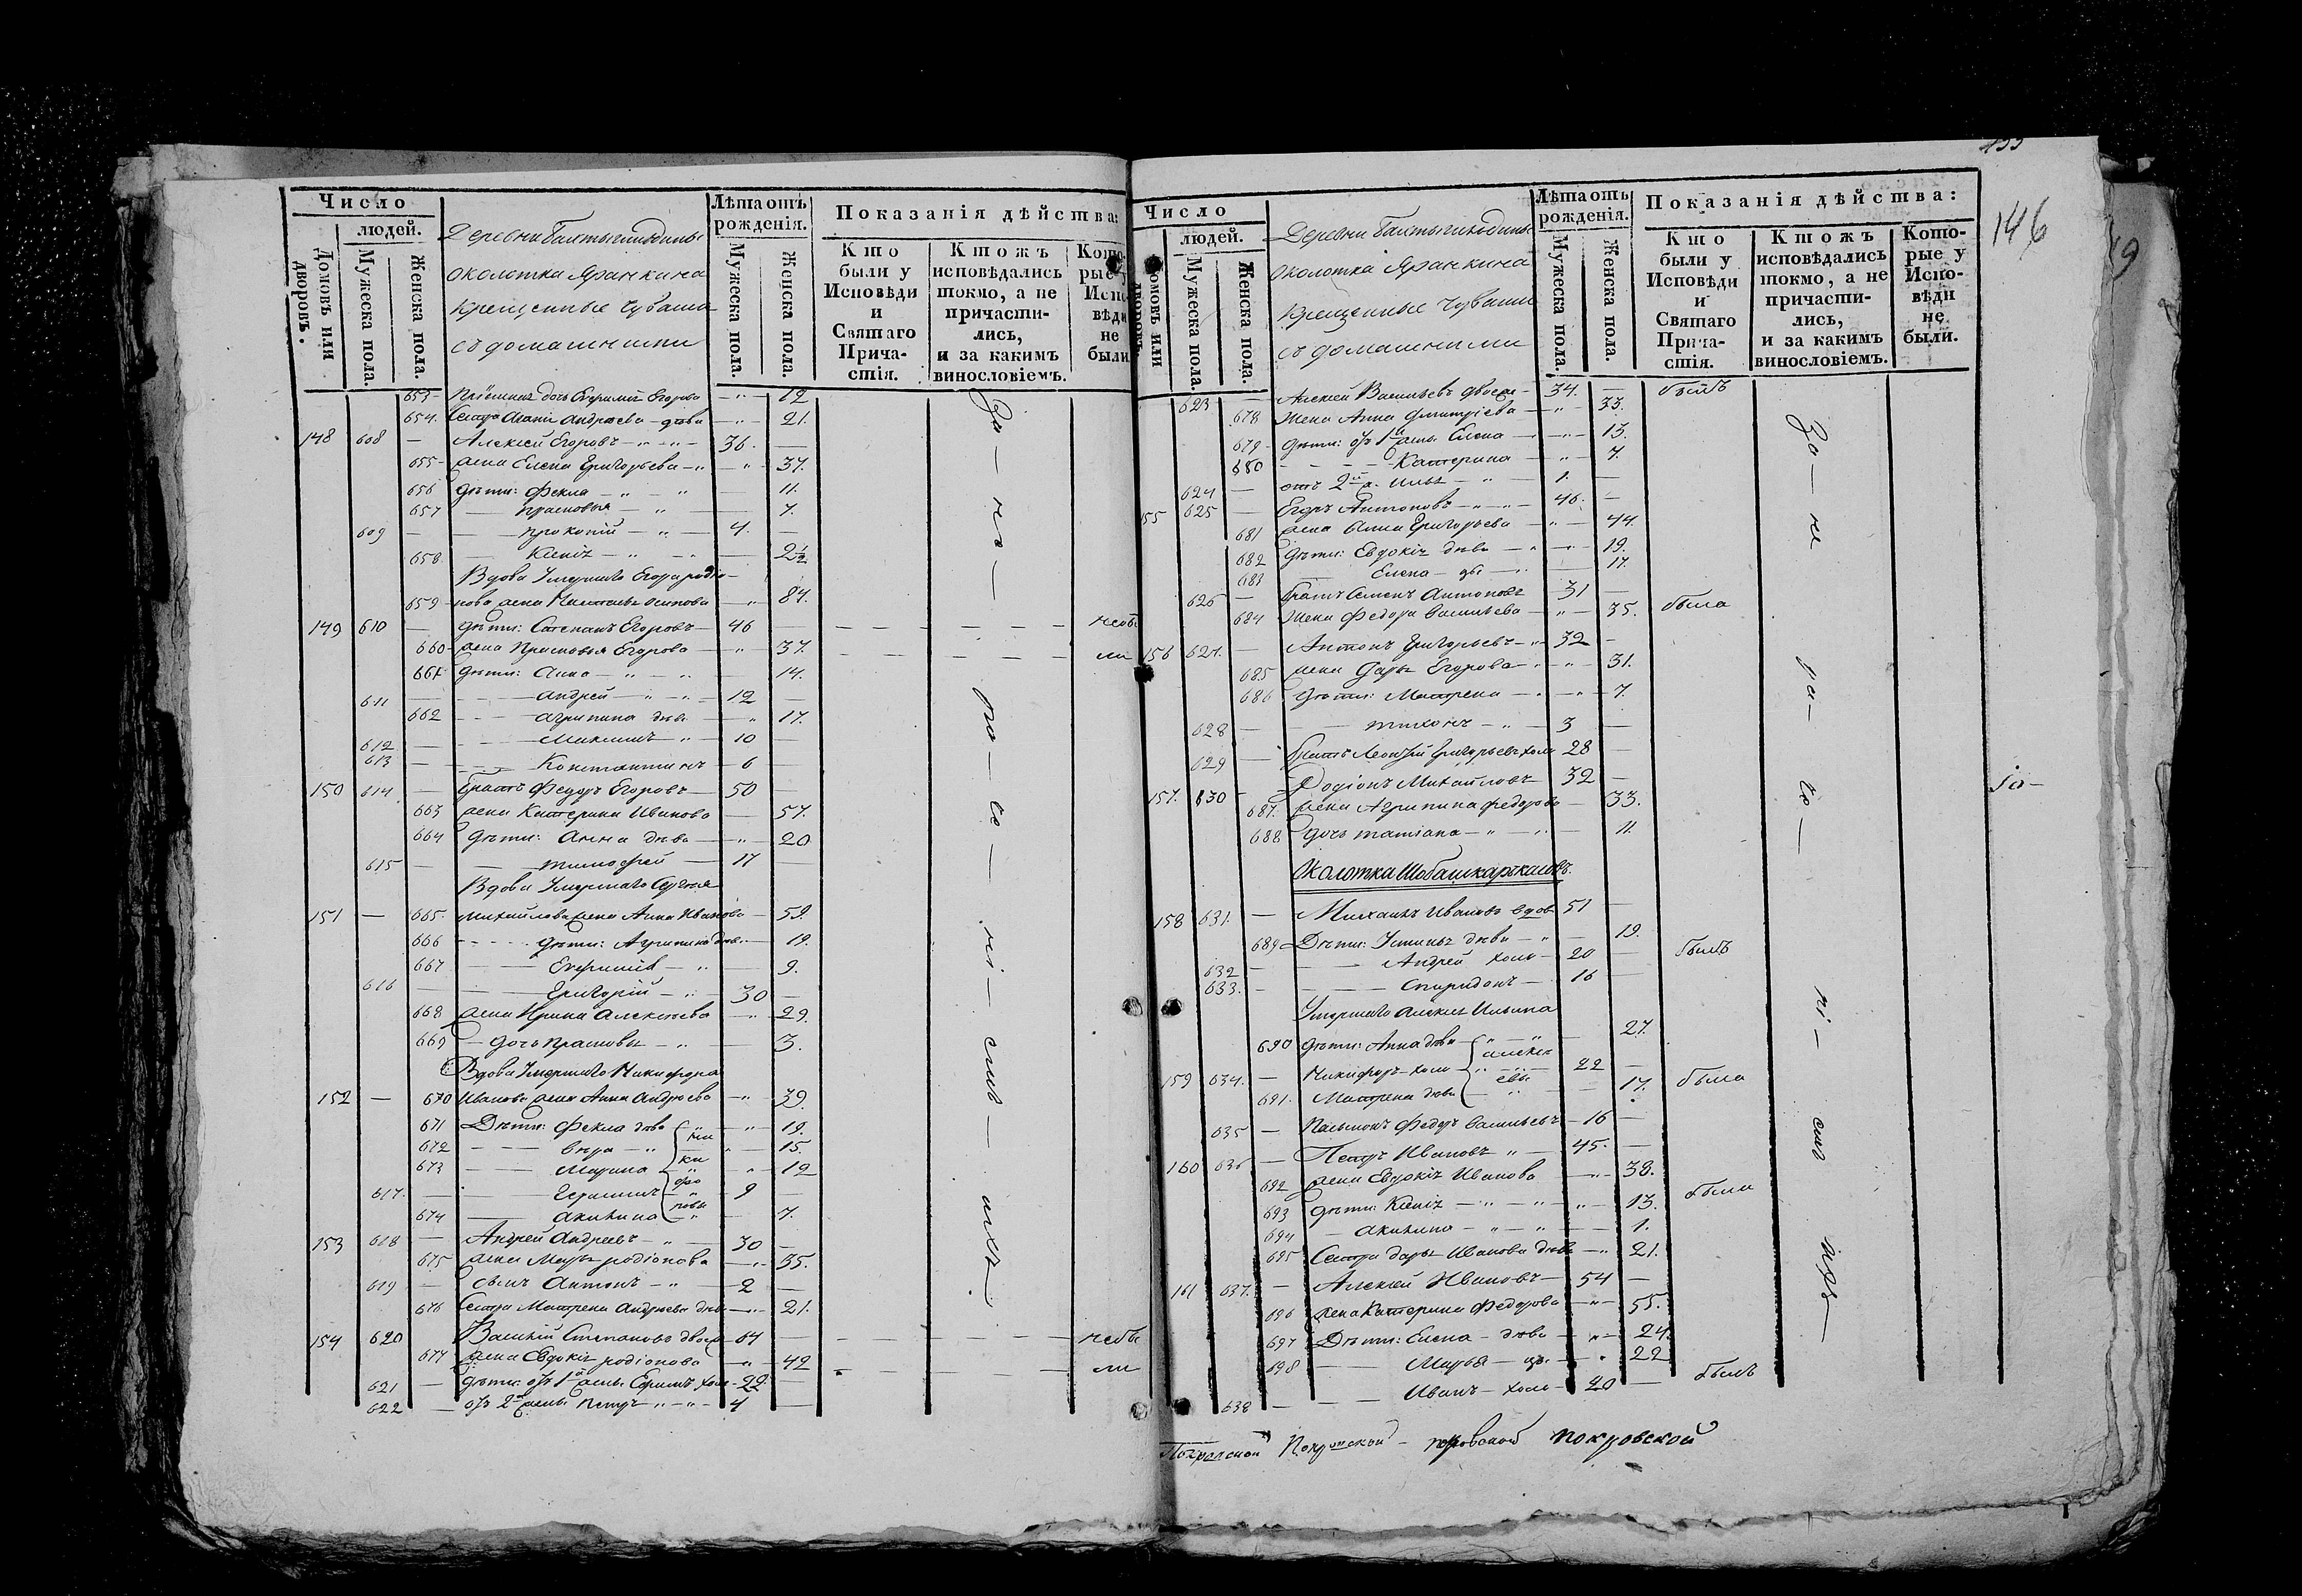 Число
людей.
Домовъ или дворовъ.
Мужеска пола.
Женска пола.
Деревни
околотка Яранкина
крещенные чуваши
съ домашними
Лѣта отъ рожденія.
Мужеска пола.
Женска пола.
Показанія дѣйства:
Кто были у Исповѣди и Святаго Причастія.
Ктожъ исповѣдались токмо, а не причастились, и за какимъ винословіемъ.
Которые у Исповѣди не были
653 - дочь Егорова - 12
654. Сестра Андреева - дѣва - 21.
148 608 - Алексей Егоровъ - 36. -
655 - жена Елена Григорьева - 37.
656 дѣти: Фекла - 11.
657 - Прасковья - 7.
609 - Прокопій - 4. -
658 - Ксенія - 2½
Вдова Умершаго Егора родіо-
659 - нова жена осипова - 84.
149 610 - дѣти: Степанъ Егоровъ - 46 - небы
660 - жена Прасковья Егорова - 37. ли
661 дѣти: Анна - 14.
611 - Андрей - 12 -
662 - Агрипина дѣв. - 17.
612 - Максимъ - 10 -
613 - Константинъ - 6 -
150 614 - братъ Федоръ Егоровъ - 50 -
663 жена Катерина Иванова - 57.
664 дѣти: Анна дѣва - 20
615 - тимофей - 17 -
Вдова Умершаго Сергея
151 - 665. Михайлова жена Анна Иванова - 59.
666 - дѣти: Агрипина дѣв. - 19.
667 - 9.
616 - Григорій - 30 -
668 жена Ирина Алексеева - 29.
669 - дочь Прасковья - 3.
Вдова Умершаго Никифора
152 - 670 Иванова жена Анна Андреева - 39.
671 Дѣти: Фекла дѣва - 19.
672 - вѣра - 15.
673 - Марина - 12
617. - Герасимъ - 9 -
674 - Акилина - 7.
ни
ки
фо
ровы
153 618 - Андрей Андреевъ - 30 -
675 жена Марья родіонова - 35.
619 - сынъ Антонъ - 2 -
676 Сестра Матрена Андреева дѣв. - 21.
154 620 Василій Степановъ двоеж. 64 - небы
677 жена Евдокія родіонова - 42 ли
621 - дѣти: отъ 1й жены Ефимъ холо - 22
622 - отъ 2й жены Петръ - 4 -
За - не - ра - де - ні - емъ - ихъ
Число
людей.
Домовъ или дворовъ.
Мужеска пола.
Женска пола.
Деревни
околотка Яранкина
крещенные чуваши
съ домашними
Лѣта отъ рожденія.
Мужеска пола.
Женска пола.
Показанія дѣйства:
Кто были у Исповѣди и Святаго Причастія.
Ктожъ исповѣдались токмо, а не причастились, и за какимъ винословіемъ.
Которые у Исповѣди не были.
146
623 - Алексей Васильевъ двоеж - 34. - былъ
678 жена Анна Дмитріева - 33.
679 - дѣти: отъ 1й жены Елена - 13.
680 - Катерина - 7.
624 - отъ 2й ж. Илья - 1. -
155 625 - Егоръ Антоновъ - 46. -
681 жена Анна Григорьева - 44.
682 дѣти: Евдокія дѣва - 19.
683 Елена - дѣ - 17.
626 - братъ Семенъ Антоновъ 31 -
684 жена Федора Васильева - 35. была
156 627. - Антонъ Григорьевъ - 32 -
685 жена Дарья Егорова - 31.
686 дѣти: Матрена - 7.
628 - тихонъ - 3 -
629 - братъ Григорьевъ холо 28 -
157. 630 - Родіонъ Михайловъ 32 -
687. жена Агрипина федорова - 33.
688 дочь татіана - 11.
Околотка
158 631. - Михаилъ Ивановъ вдов 51 -
689 Дѣти: Устинья дѣва - 19.
632 - Андрей холо - 20 - былъ
633. - Спиридонъ - 16
Умершаго Алексея Ильина
690 дѣти: Анна дѣва - 27.
159 634. - Никифоръ - холо - 22 -
691. Матрена дѣва - 17. была
алексе
евы
635 - Федоръ Васильевъ - 16 -
160 636 - Петръ Ивановъ - 45. -
692 жена Евдокія Иванова - 38.
693 дѣти: Ксенія - 13. была
694 - Акилина - 1.
695 Сестра дарья Иванова дѣв. - 21.
161 637. - Алексей Ивановъ - 54 -
696 жена Катерина Федорова - 55.
697 Дѣти: Елена - дѣва - 24.
698 - Марья - дѣ. - 22
638 - Иванъ - холо - 20 - былъ
За - не - ра - де - ні - емъ ихъ -
Покровской